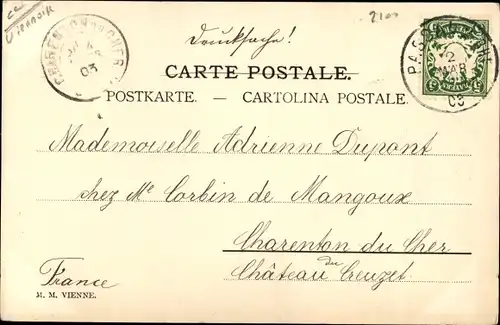 Viennoise
2100
Drucksache!
CHARENTON DU CHER
03
CARTE POSTALE.
POSTKARTE. — CARTOLINA POSTALE.
Mademoiselle Adrienne Dupont
chez Me Corbin de Mangoux
Charenton du Cher
Château du Creuzet
France
M. M. VIENNE.